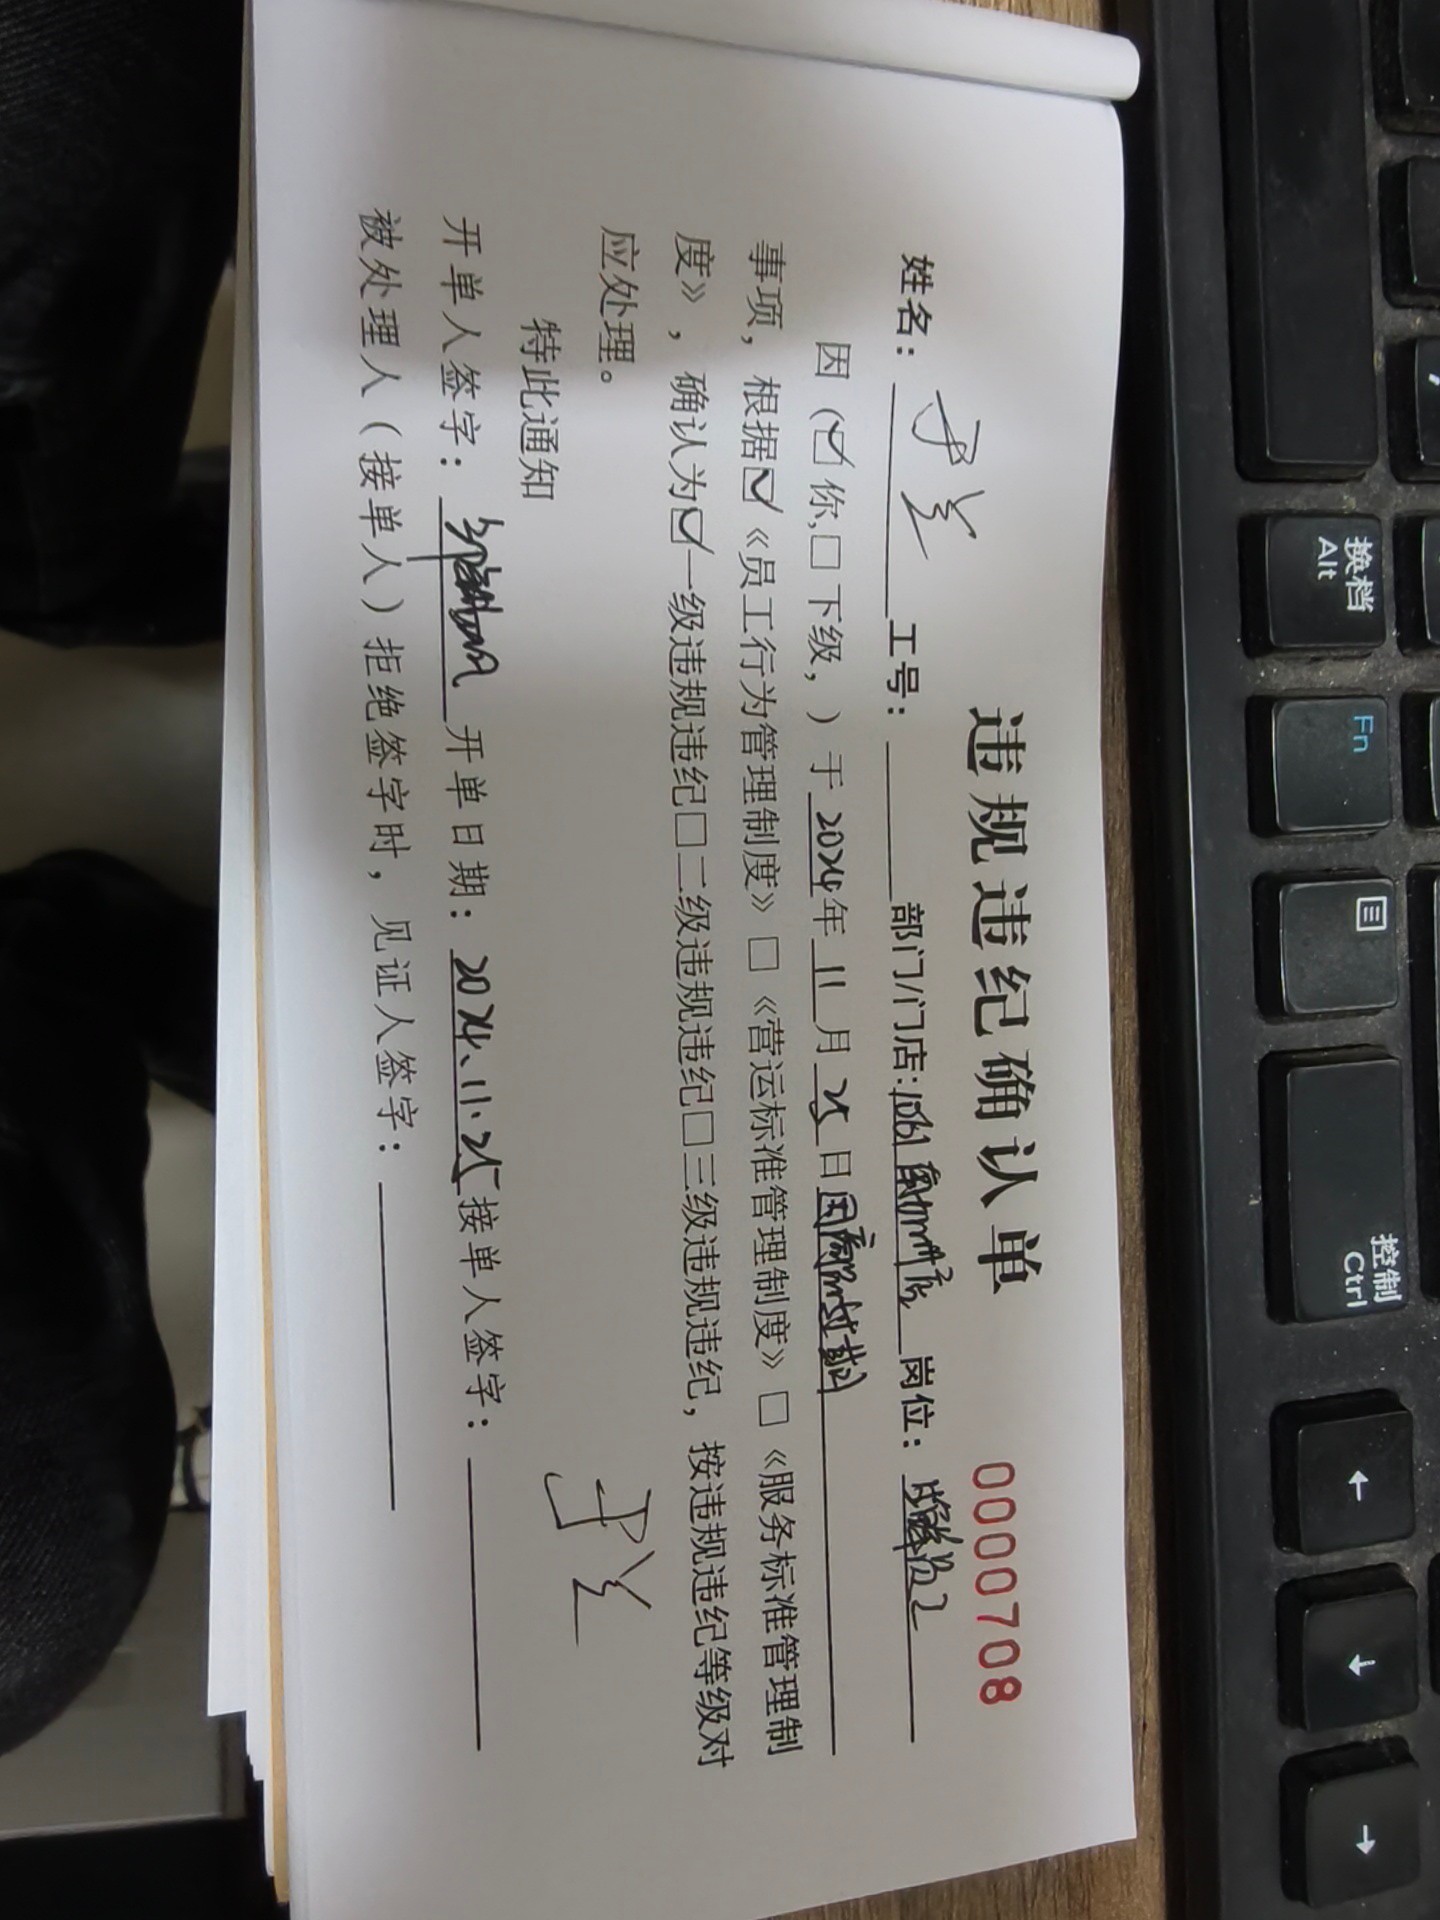 违规违纪确认单 0000708
姓名： 工号： 部门/门店:1061 岗位：
因（☑你,□下级，）于2024年11月25日
事项，根据☑《员工行为管理制度》□《营运标准管理制度》□《服务标准管理制
度》，确认为☑一级违规违纪□二级违规违纪□三级违规违纪，按违规违纪等级对
应处理。
特此通知
开单人签字： 开单日期：2024.11.25接单人签字：
被处理人（接单人）拒绝签字时，见证人签字：
换档
Alt
Fn
控制
Ctrl